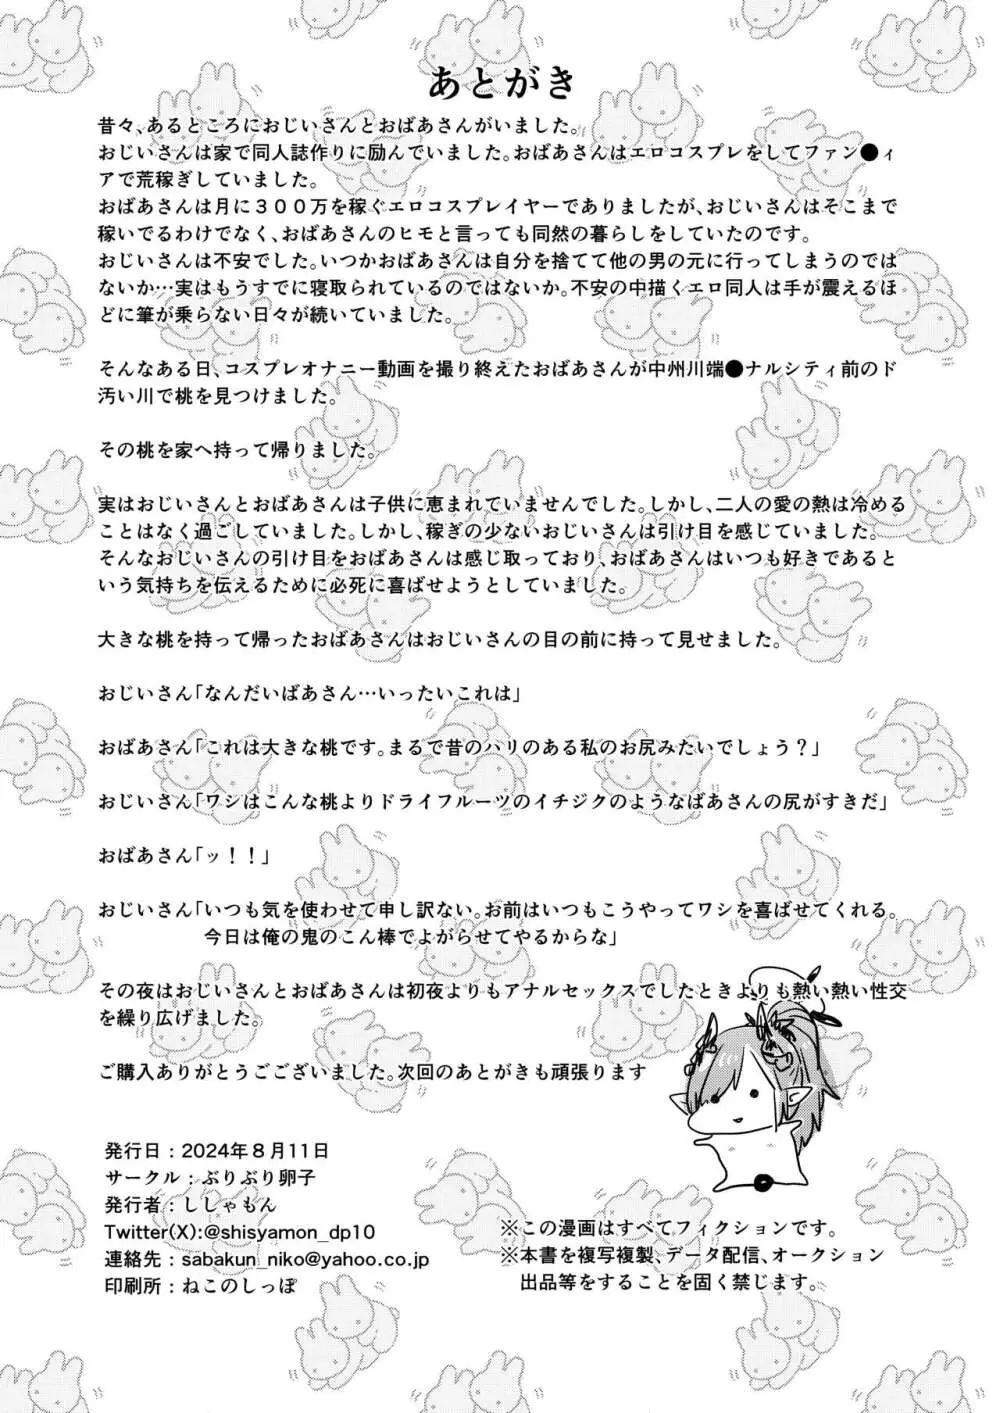 あとがき
昔々、あるところにおじいさんとおばあさんがいました。
おじいさんは家で同人誌作りに励んでいました。おばあさんはエロコスプレをしてファン●ィ
アで荒稼ぎしていました。
おばあさんは月に３００万を稼ぐエロコスプレイヤーでありましたが、おじいさんはそこまで
稼いでるわけでなく、おばあさんのヒモと言っても同然の暮らしをしていたのです。
おじいさんは不安でした。いつかおばあさんは自分を捨てて他の男の元に行ってしまうのでは
ないか…実はもうすでに寝取られているのではないか。不安の中描くエロ同人は手が震えるほ
どに筆が乗らない日々が続いていました。
そんなある日、コスプレオナニー動画を撮り終えたおばあさんが中州川端●ナルシティ前のド
汚い川で桃を見つけました。
その桃を家へ持って帰りました。
実はおじいさんとおばあさんは子供に恵まれていませんでした。しかし、二人の愛の熱は冷める
ことはなく過ごしていました。しかし、稼ぎの少ないおじいさんは引け目を感じていました。
そんなおじいさんの引け目をおばあさんは感じ取っており、おばあさんはいつも好きであると
いう気持ちを伝えるために必死に喜ばせようとしていました。
大きな桃を持って帰ったおばあさんはおじいさんの目の前に持って見せました。
おじいさん「なんだいばあさん…いったいこれは」
おばあさん「これは大きな桃です。まるで昔のハリのある私のお尻みたいでしょう？」
おじいさん「ワシはこんな桃よりドライフルーツのイチジクのようなばあさんの尻がすきだ」
おばあさん「ッ！！」
おじいさん「いつも気を使わせて申し訳ない。お前はいつもこうやってワシを喜ばせてくれる。
今日は俺の鬼のこん棒でよがらせてやるからな」
その夜はおじいさんとおばあさんは初夜よりもアナルセックスでしたときよりも熱い熱い性交
を繰り広げました。
ご購入ありがとうございました。次回のあとがきも頑張ります
発行日：2024年８月11日
サークル：ぶりぶり卵子
発行者：ししゃもん
Twitter(X):@shisyamon_dp10
連絡先：sabakun_niko@yahoo.co.jp
印刷所：ねこのしっぽ
※この漫画はすべてフィクションです。
※本書を複写複製、データ配信、オークション
出品等をすることを固く禁じます。